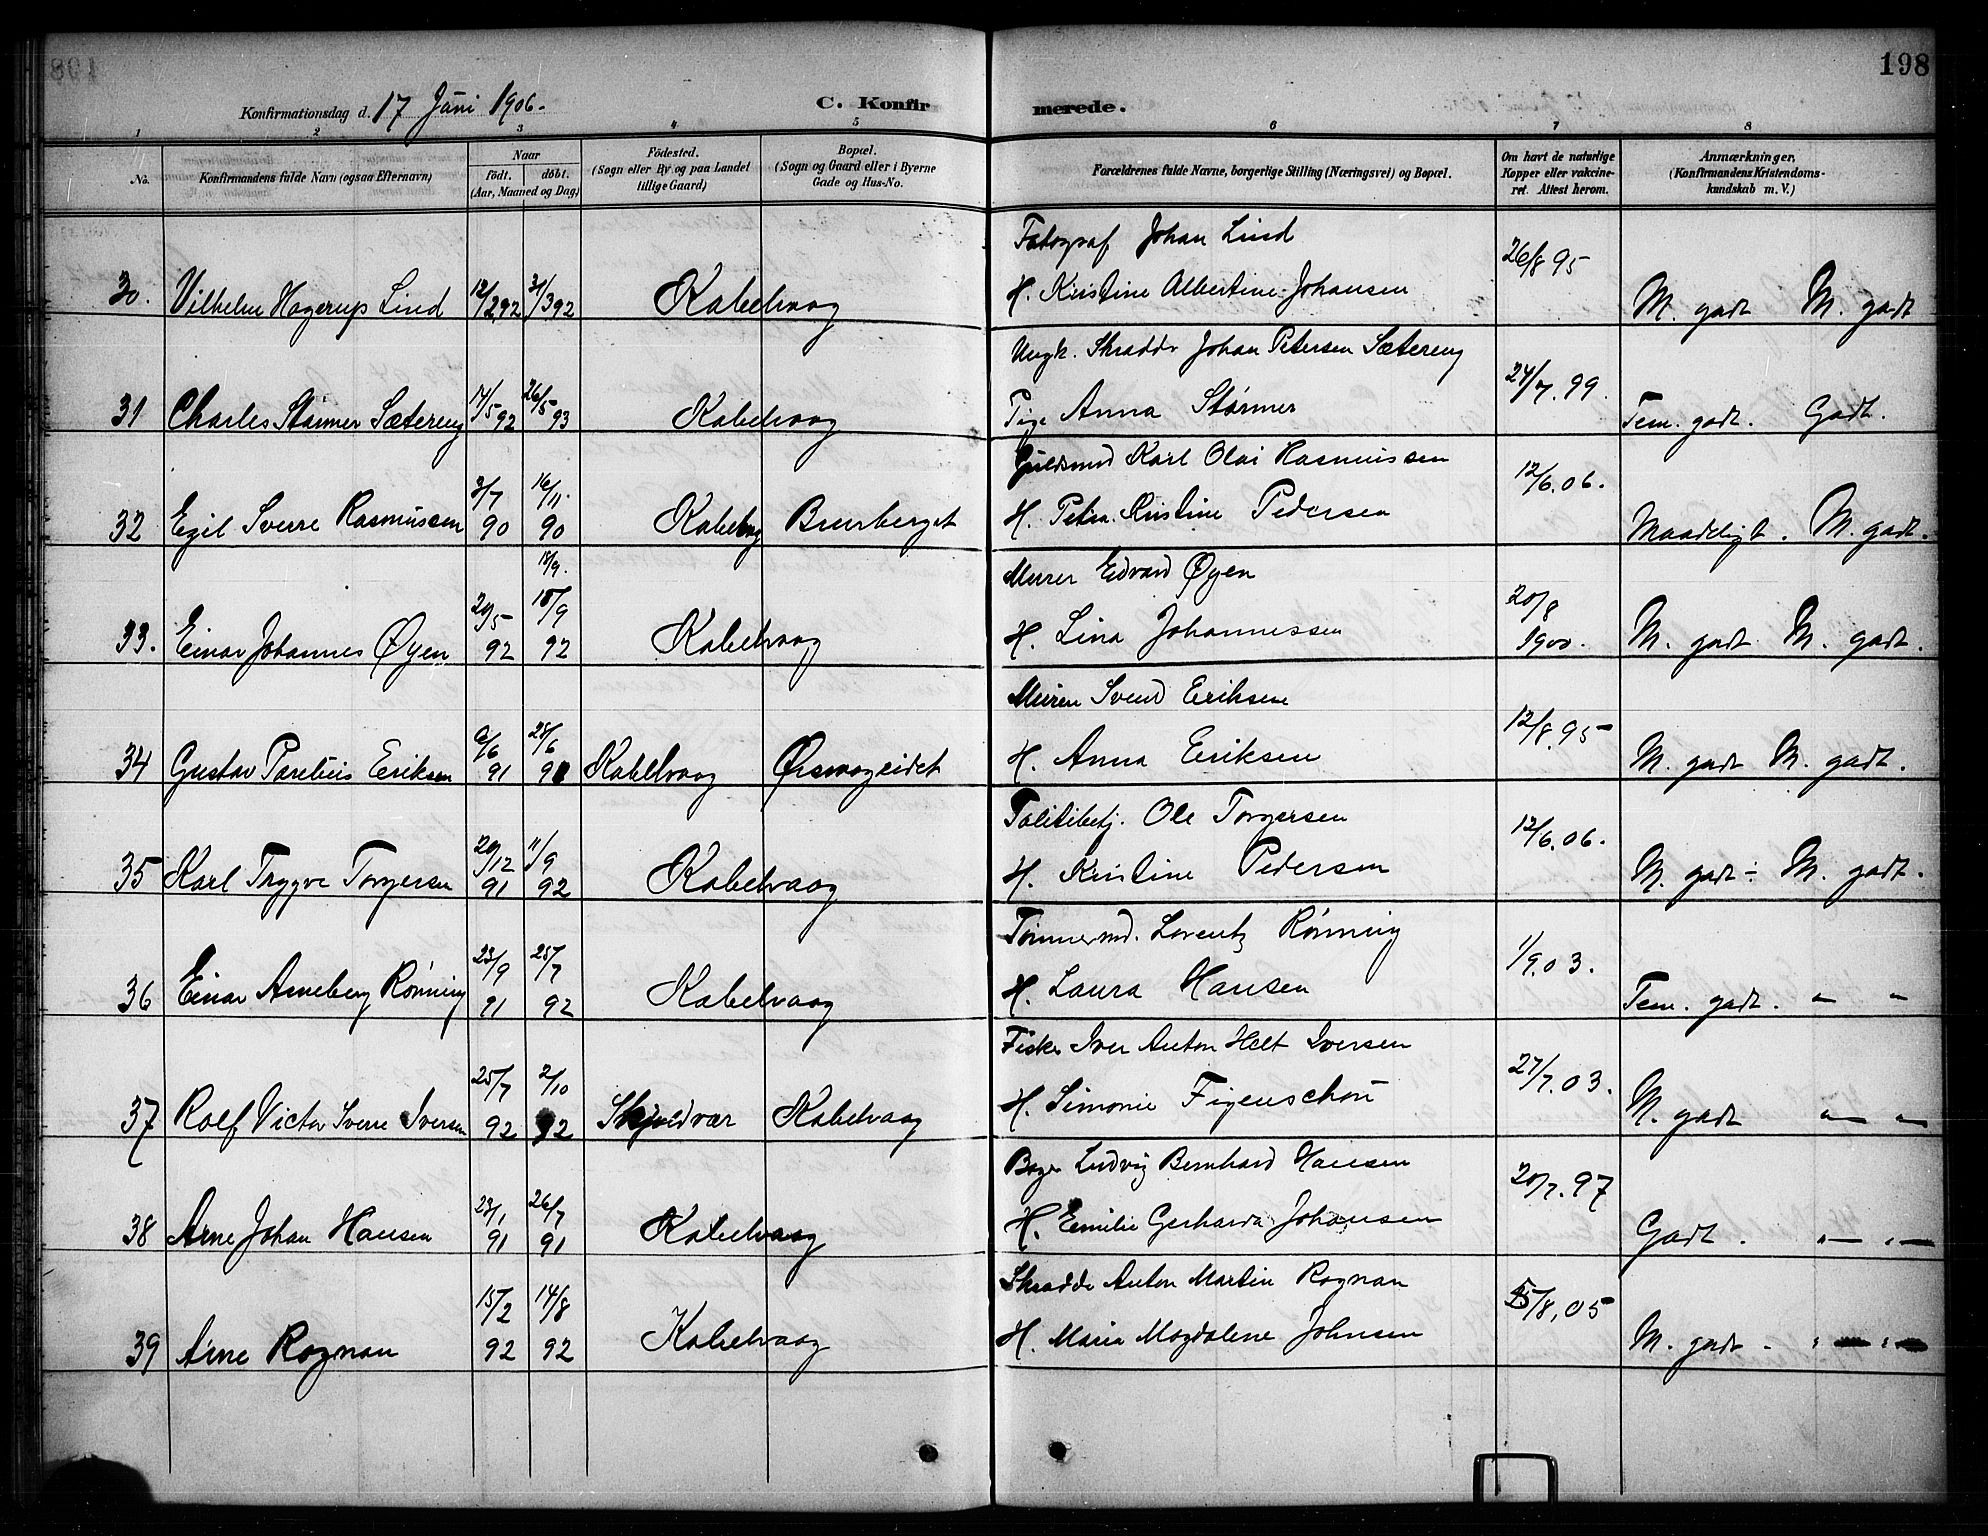 198
Konfirmationsdag d. 17 Juni 1906.
C. Konfirmerede.
1 2 3 4 5 6 7 8
No. Konfirmandens fulde Navn (ogsaa Efternavn) Naar født. døbt. (Aar, Maaned og Dag) Fødested. (Sogn eller By og paa Landet tillige Gaard) Bopæl. (Sogn og Gaard eller i Byerne Gade og Hus-No. Forældrenes fulde Navne, borgerlige Stilling (Næringsvei) og Bopæl. Om havt de naturlige Kopper eller vakcineret. Attest herom. Anmærkninger, (Konfirmandens Kristendomskundskab m. V.)
Fotograf Johan Lind
30. Vilhelm Hagerup Lind 12/2 92 31/3 92 Kabelvaag H. Kristine Albertine Johansen 26/8 95 M. godt M. godt
Ungk. Skradder Johan Petersen Sætereng
31 Charles Størmer Sætereng 17/5 92 26/5 93 Kabelvaag Pige Anna Størmer 24/7. 99. Tem. godt. Godt.
Guldsmed Karl Olai Rasmussen
32 Egil Sverre Rasmussen 3/7 90 16/11. 90 Kabelvaag Brurberget H. Petra Kristine Pedersen 12/6. 06. Maadeligt. M. godt.
Murer Edvard Øyen
33. Einar Johannes Øyen 20/5 92 18/9 92 Kabelvaag H. Lina Johannessen 20/8 1900. M. godt M. godt.
Murer Svend Eriksen
34 Gustav Parelius Eriksen 9/6 91 28/6 91 Kabelvaag Ørsvaageidet H. Anna Eriksen 12/8. 95 M. godt M. godt.
Politibetj. Ole Torgersen
35 Karl Trygve Torgersen 20/12 91 11/9 92 Kabelvaag H. Kristine Pedersen 12/6. 06. M. godt ÷ M. godt.
Tømmermd. Lorentz Rønning
36 Einar Arneberg Rønning 23/9 91 25/7 92 Kabelvaag H. Laura Hansen 1/9. 03. Tem. godt. " "
Fisker Iver Anton Helt Iversen
37 Rolf Victor Sverre Iversen 25/7 92 2/10 92 Skjoldvær Kabelvaag H. Simonie Figenschou 27/7. 03. M. godt " "
Bager Ludvig Bernhard Hansen
38 Arne Johan Hansen 23/1 91 26/7 91 Kabelvaag H. Emilie Gerharda Johansen 20/7. 97 Godt. " "
Skradder Anton Martin Rognan
39 Arne Rognan 15/2 92 14/8 92 Kabelvaag H. Maria Magdalene Johnsen 5/8, 05 M. godt.